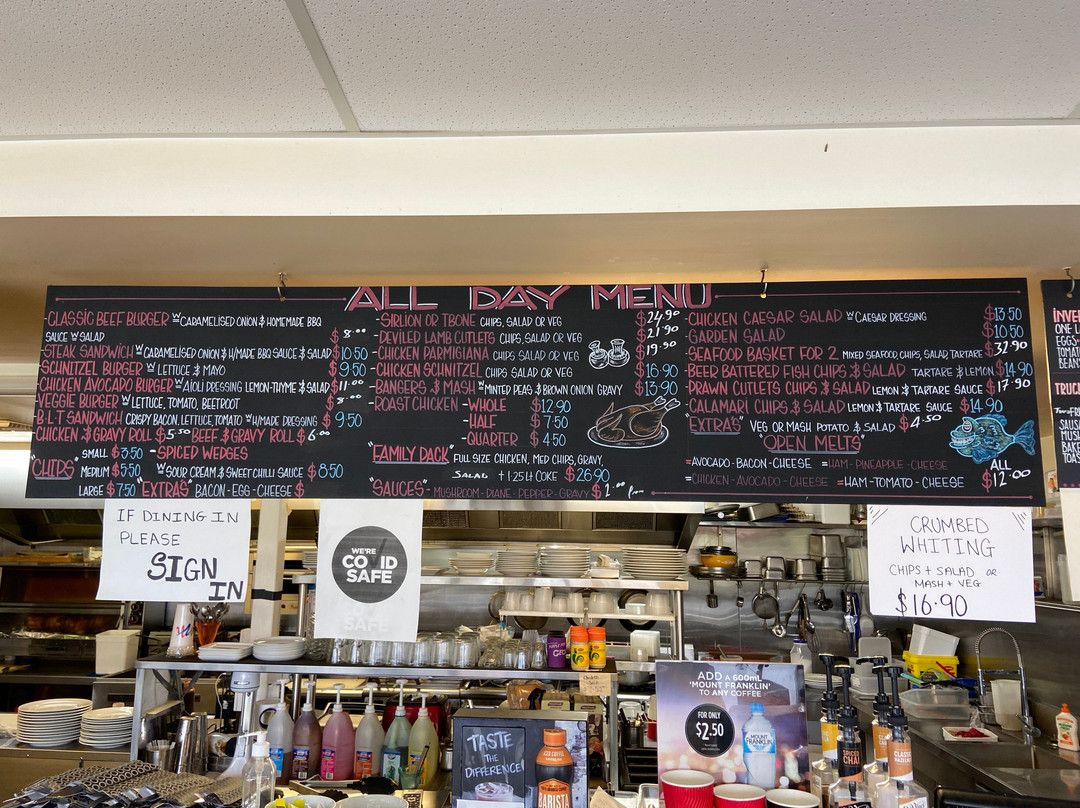 ALL DAY MENU
-CLASSIC BEEF BURGER W CARAMELISED ONION & HOMEMADE BBQ
SAUCE W SALAD $ 8.00
-STEAK SANDWICH W CARAMELISED ONION & H/MADE BBQ SAUCE & SALAD $10.50
SCHNITZEL BURGER W LETTUCE & MAYO $9.50
CHICKEN AVOCADO BURGER W AIOLI DRESSING LEMON-THYME & SALAD $11.00
VEGGIE BURGER W LETTUCE, TOMATO, BEETROOT $ 8.00
B-L-T SANDWICH CRISPY BACON, LETTUCE, TOMATO W H/MADE DRESSING $ 9.50
CHICKEN & GRAVY ROLL $5.50 BEEF & GRAVY ROLL $6.00
"CHIPS" SMALL $3.50 -SPICED WEDGES
MEDIUM $5.50 W SOUR CREAM & SWEET CHILLI SAUCE $8.50
LARGE $7.50 "EXTRAS" BACON-EGG-CHEESE $
-SIRLION OR TBONE CHIPS, SALAD OR VEG $24.90
-DEVILED LAMB CUTLETS CHIPS, SALAD OR VEG $21.90
-CHICKEN PARMIGIANA CHIPS SALAD OR VEG $19.90
-CHICKEN SCHNITZEL CHIPS SALAD OR VEG $16.90
-BANGERS & MASH W MINTED PEAS & BROWN ONION GRAVY $13.90
-ROAST CHICKEN -WHOLE $12.90
-HALF $ 7.50
-QUARTER $ 4.50
"FAMILY PACK" FULL SIZE CHICKEN, MED CHIPS, GRAVY,
SALAD +1.25 Lt COKE $26.90
"SAUCES"- MUSHROOM-DIANE-PEPPER-GRAVY $2.00
-CHICKEN CAESAR SALAD W CAESAR DRESSING $13.50
-GARDEN SALAD $10.50
-SEAFOOD BASKET FOR 2 MIXED SEAFOOD, CHIPS, SALAD, TARTARE $32.90
-BEER BATTERED FISH CHIPS & SALAD TARTARE & LEMON $14.90
-PRAWN CUTLETS CHIPS & SALAD LEMON & TARTARE SAUCE $17.90
CALAMARI CHIPS & SALAD LEMON & TARTARE SAUCE $14.90
"EXTRAS" VEG OR MASH POTATO & SALAD $4.50
"OPEN MELTS"
=AVOCADO-BACON-CHEESE =HAM-PINEAPPLE-CHEESE
=CHICKEN-AVOCADO-CHEESE =HAM-TOMATO-CHEESE
ALL
$12.00
ONE
EGGS
IF DINING IN
PLEASE
SIGN
IN
WE'RE
COVID
SAFE
CRUMBED
WHITING
CHIPS + SALAD OR
MASH + VEG
$16.90
ADD A 600mL
'MOUNT FRANKLIN'
TO ANY COFFEE
FOR ONLY
$2.50
MOUNT
FRANKLIN
TASTE
THE
DIFFERENCE
ICED COFFEE
BARISTA
SPICED
CHAI
CLASSIC